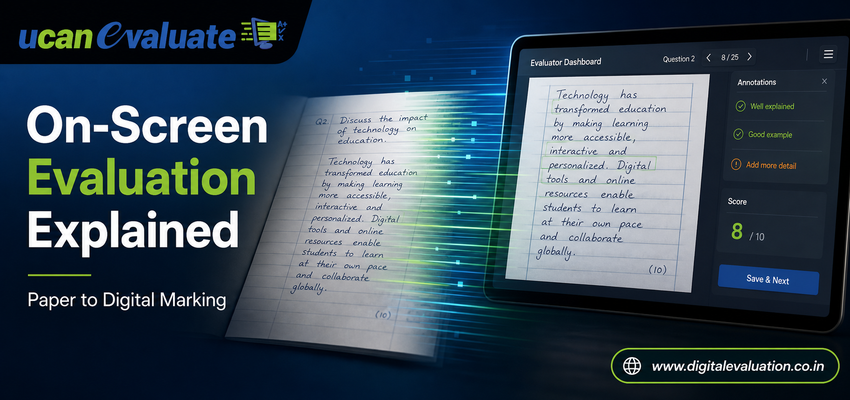 ucan evaluate
A+
On-Screen
Evaluation
Explained
Paper to Digital Marking
Q2 Discuss the impact
of technology on
education.
Technology has
transformed education
by making learning
more accessible,
interactive and
personalized. Digital
tools and online
resources enable
students to learn
at their own pace
and collaborate
globally.
(10)
Evaluator Dashboard
Question 2
8 / 25
Technology has
transformed education
by making learning
more accessible,
interactive and
personalized. Digital
tools and online
resources enable
students to learn
at their own pace
and collaborate
globally.
(10)
Annotations
Well explained
Good example
Add more detail
Score
8 / 10
Save & Next
www.digitalevaluation.co.in